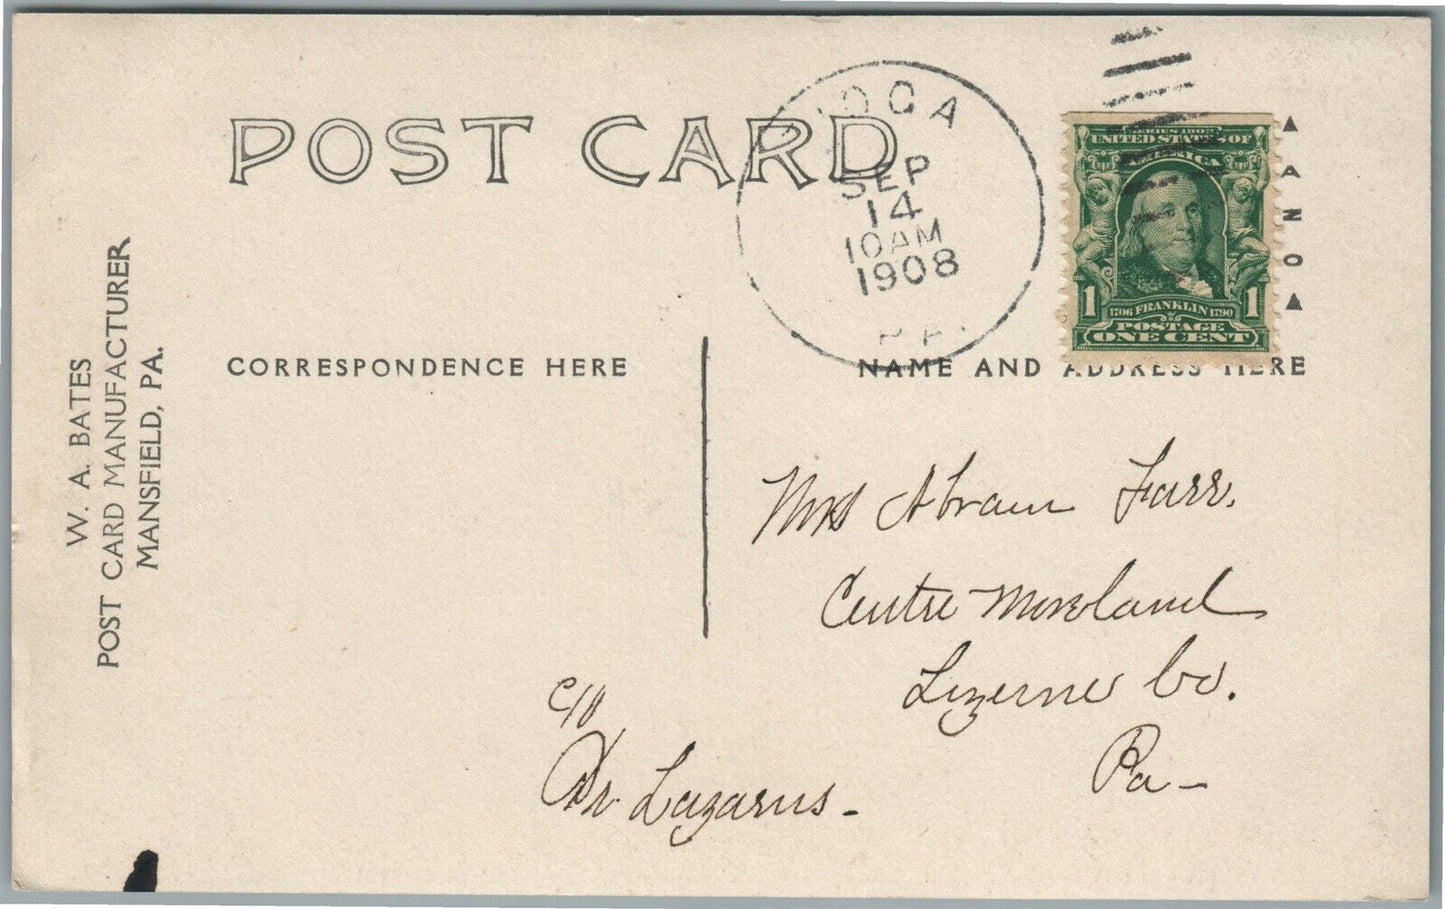 POST CARD
IOGA
SEP
14
10AM
1908
PA.
SERIES 1902
UNITED STATES OF
AMERICA
1 1
1706 FRANKLIN 1790
POSTAGE
ONE CENT
AZO
CORRESPONDENCE HERE
NAME AND ADDRESS HERE
W. A. BATES
POST CARD MANUFACTURER
MANSFIELD, PA.
Mrs Abram Farr.
Centre Moreland
Luzerne Co.
Pa -
c/o
Dr. Lazarus -